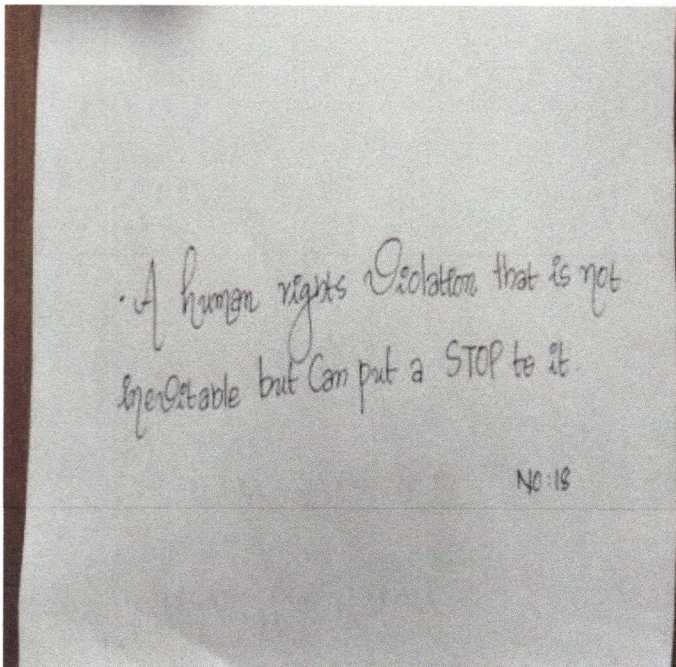 ·A human rights Violation that is not
inevitable but Can put a STOP to it.
NO:18